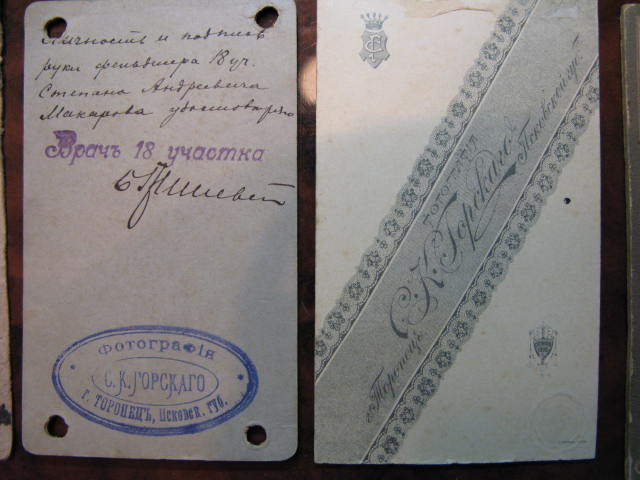 Личность и подпись
руки фельдшера 18 уч.
Степана Андреевича
Макарова удостоверяю
Врачъ 18 участка
Фотографія
С. К. ГОРСКАГО
г. ТОРОПЕЦЪ, Псковск. ГУБ.
ФОТОГРАФІЯ
С. К. Горскаго
г. Торопецъ Псковской губ.